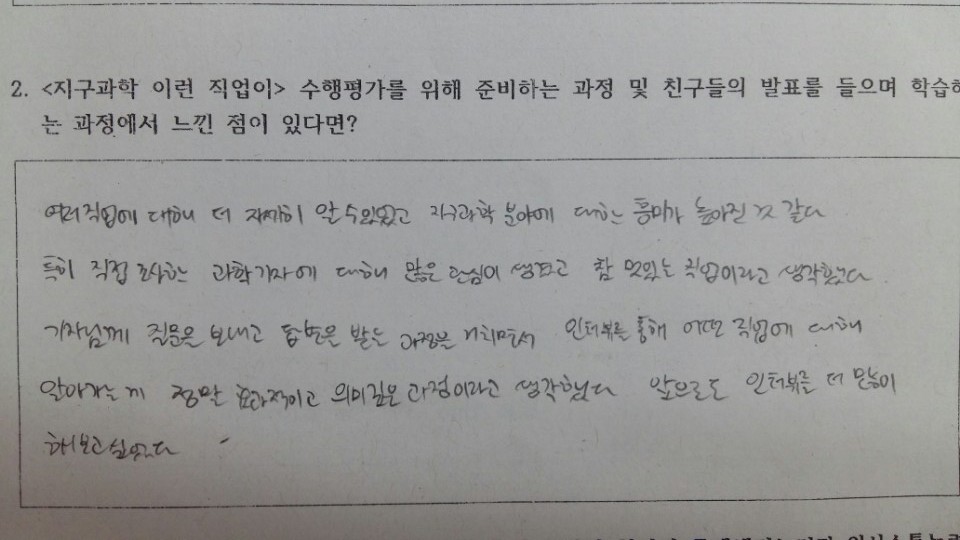 2. <지구과학 이런 직업이> 수행평가를 위해 준비하는 과정 및 친구들의 발표를 들으며 학습하
는 과정에서 느낀 점이 있다면?
여러 직업에 대해 더 자세히 알 수 있었고 지구과학 분야에 대한 흥미가 높아진 것 같다
특히 직접 조사한 과학기자에 대해 많은 관심이 생기고 참 멋있는 직업이라고 생각했다
기자님께 질문을 보내고 답변을 받는 과정을 거치면서 인터뷰를 통해 어떤 직업에 대해
알아가는게 정말 효과적이고 의미깊은 과정이라고 생각했다 앞으로도 인터뷰를 더 많이
해보고싶었다